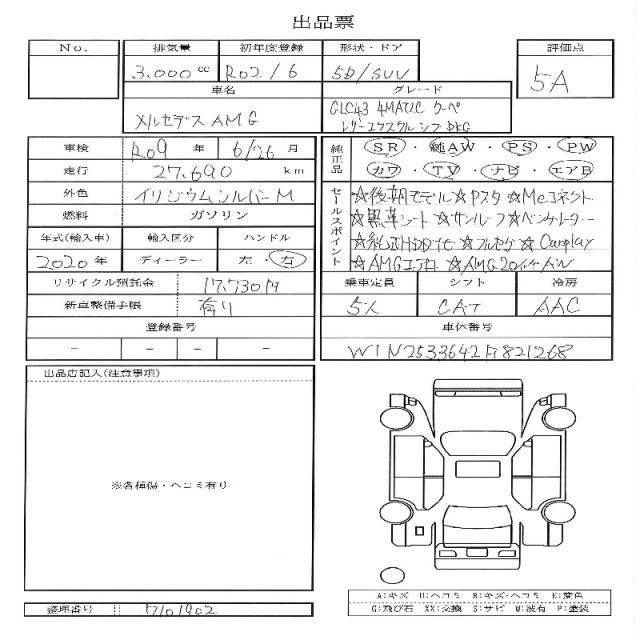 出品票
No. 排気量 初年度登録 形状・ドア 評価点
3.000cc R02/6 5D/SUV 5A
車名 グレード
メルセデスAMG GLC43 4MATIC クーペ
レザーエクスクルシブPKG
車検 R09年 6/26月 純正品 SR・純AW・PS・PW
走行 27.690km カワ・TV・ナビ・エアB
外色 イリジウムシルバーM セールスポイント ☆後期モデル☆Pスタ☆Meコネクト
燃料 ガソリン ☆黒革シート☆サンルーフ☆ベンチレーター
年式(輸入車) 輸入区分 ハンドル ☆純正HDDナビ☆フルセグ☆Carplay
2020年 ディーラー 左・右 ☆AMGエアロ☆AMG20インチAW
リサイクル預託金 17.730円 乗車定員 シフト 冷房
新車整備手帳 有り 5人 CAT AAC
登録番号 車体番号
－ － － － W1N2533642F821268
出品店記入(注意事項)
※各種傷・ヘコミ有り
A:キズ U:ヘコミ B:キズ・ヘコミ E:変色
G:飛び石 XX:交換 S:サビ W:波有 P:塗装
整理番号 7101902